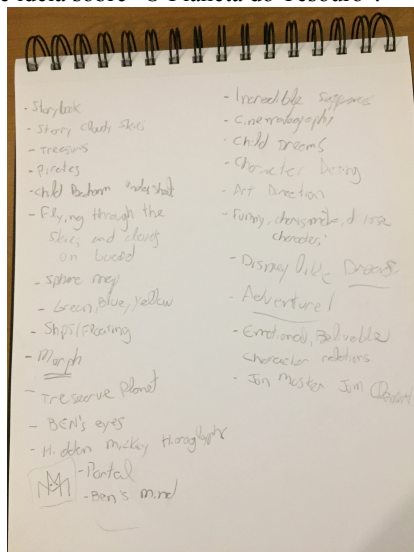 e ideia sobre "O Planeta do Tesouro".
- Storybook
- Story clouds skies
- Treasures
- Pirates
- child Bedroom
- Flying through the
skies and clouds
on board
- sphere map
- Green, Blue, Yellow
- Ships/Floaring
- Morph
- Treasure Planet
- BEN's eyes
- Hidden mickey
- Portal
- Ben's mind
- Incredible
- Cinematography
- Child Dreams
- Character Desing
- Art Direction
- Funny, charismatic,
character,
- Disney like
- Adventure!
- Emotional, Belivable
character relations
- Jim